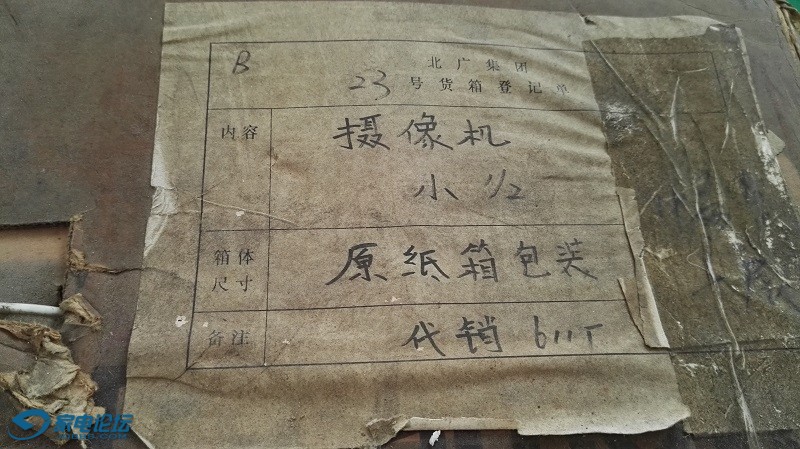 B
北广集团
23号货箱登记单
内容
摄像机
小 1/2
箱体尺寸
原纸箱包装
备注
代销 611T
家电论坛